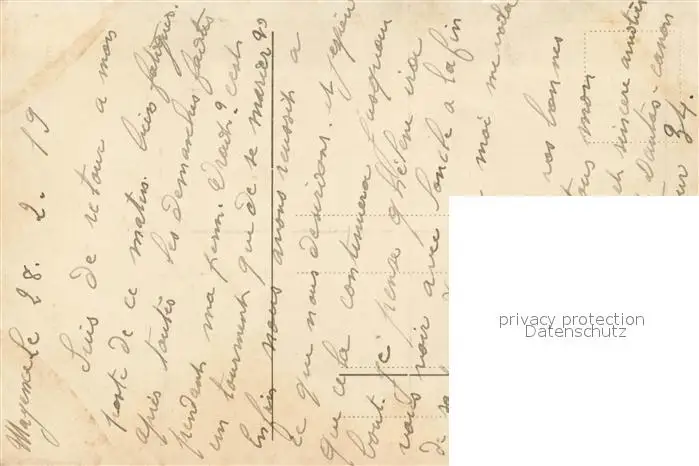 Mayence le 28. 2. 19
Suis de retour a mon
poste de ce matin. bien fatigué.
après toutes les demarches faites
pendant ma perm. Crois-tu? c'est
un tourment que de se marier??
Enfin nous avons reussit a
ce que nous desirions. et j'espère
que cela continuera jusqu'au
bout. je pense qu'Hélène ira
vous voir avec l'oncle a la fin
de sa
moi me voila
vos bonnes
mon
et sincère amitiés
34.
privacy protection
Datenschutz